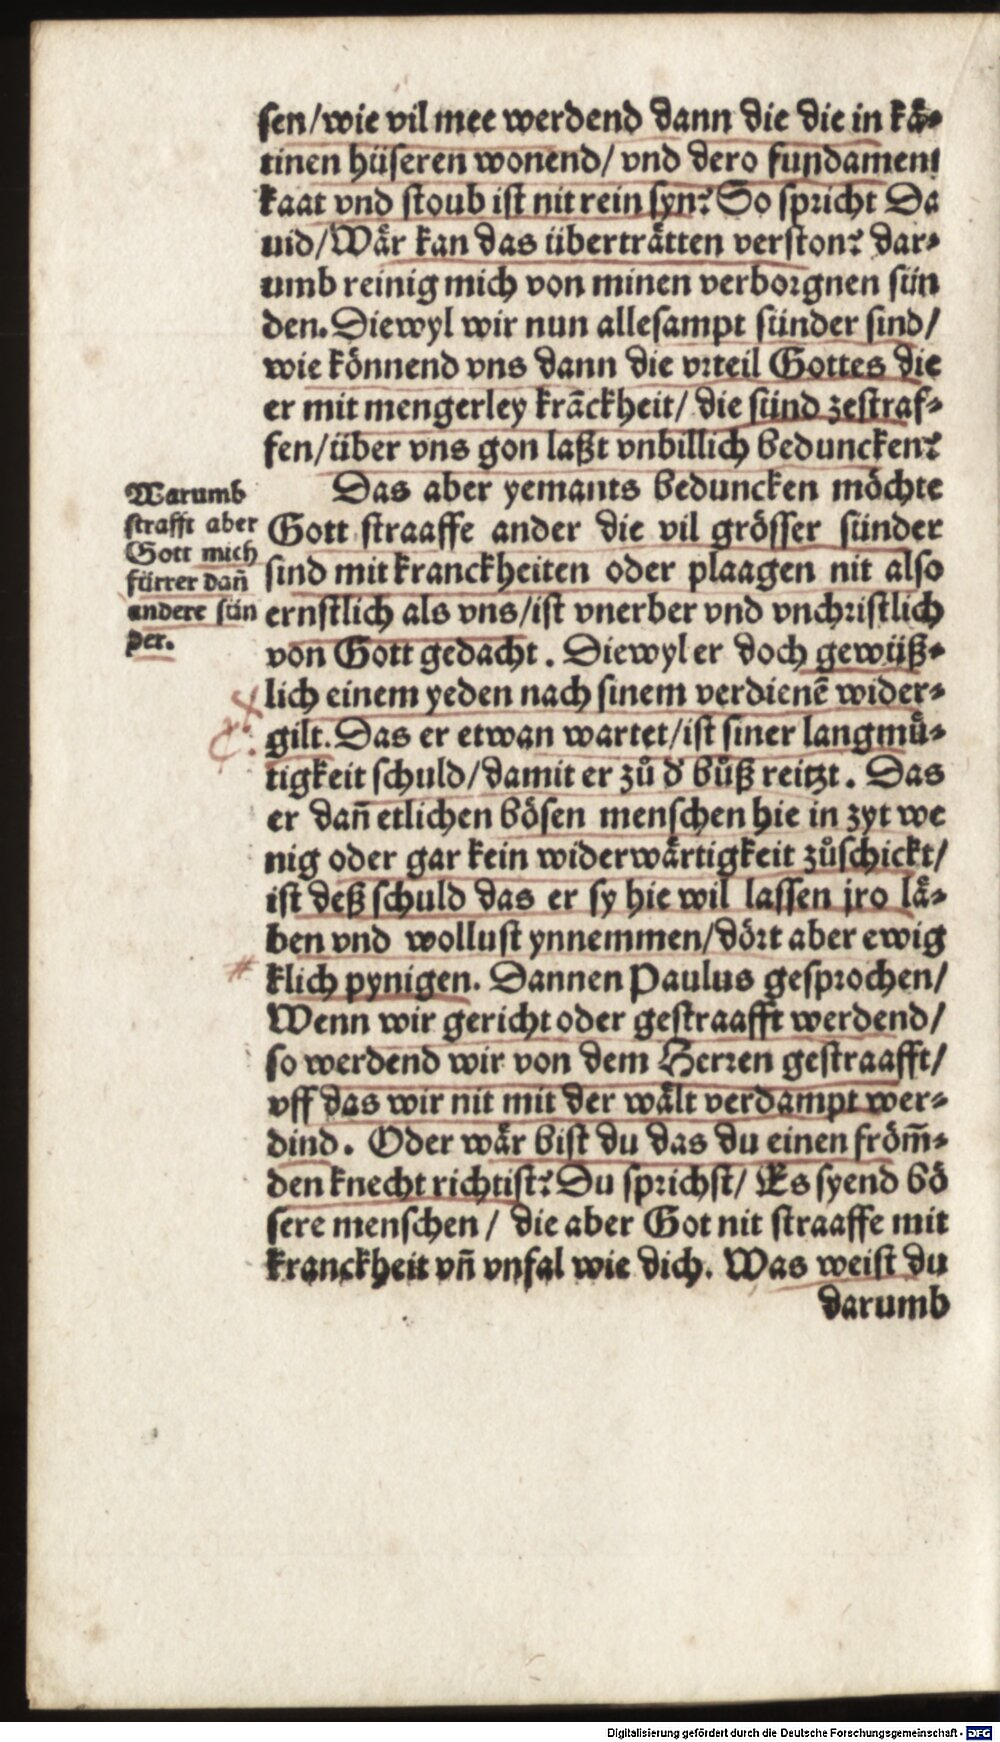 sen/wie vil mee werdend dann die die in kaͤ⸗
tinen hüseren wonend/ vnd dero fundament
kaat vnd stoub ist nit rein syn? So spricht Da
uid/Waͤr kan das übertraͤtten verston? dar⸗
umb reinig mich von minen verborgnen sün
den. Diewyl wir nun allesampt sünder sind/
wie könnend vns dann die vrteil Gottes die
er mit mengerley krāckheit/ die sünd zestraf⸗
fen/über vns gon laßt vnbillich beduncken?
Das aber yemants beduncken möchte
Warumb
strafft aber
Gott mich
fürrer dañ
andere sün
der.
Gott straaffe ander die vil grösser sünder
sind mit kranckheiten oder plaagen nit also
ernstlich als vns/ist vnerber vnd vnchristlich
von Gott gedacht. Diewyl er doch gewüß⸗
lich einem yeden nach sinem verdienē wider⸗
gilt. Das er etwan wartet/ist siner langmuͤ⸗
tigkeit schuld/damit er zuͦ d' buͦß reitzt. Das
er dañ etlichen bösen menschen hie in zyt we
nig oder gar kein widerwaͤrtigkeit zuͦschickt/
ist deß schuld das er sy hie wil lassen jro laͤ⸗
ben vnd wollust ynnemmen/dört aber ewig
klich pynigen. Dannen Paulus gesprochen/
Wenn wir gericht oder gestraafft werdend/
so werdend wir von dem Herren gestraafft/
vff das wir nit mit der waͤlt verdampt wer⸗
dind. Oder waͤr bist du das du einen fröm̄⸗
den knecht richtist? Du sprichst/ Es syend bö
sere menschen/ die aber Got nit straaffe mit
kranckheit vñ vnfal wie dich. Was weist du
darumb
Digitalisierung gefördert durch die Deutsche Forschungsgemeinschaft - DFG